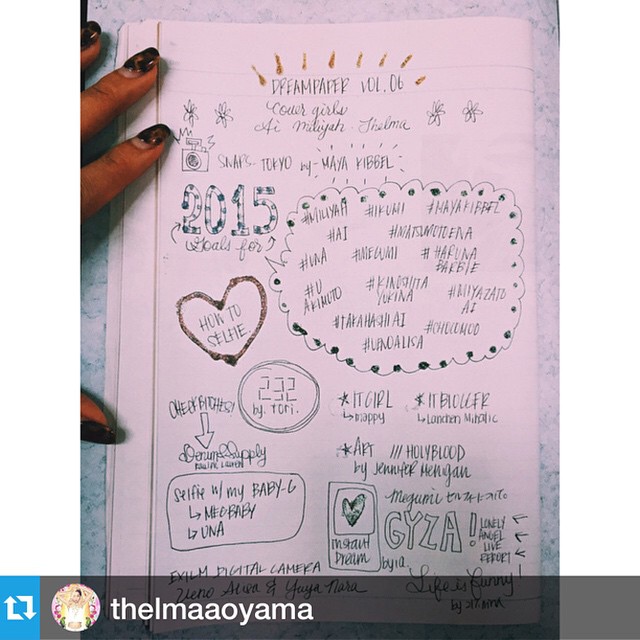 DREAMPAPER VOL.06
Cover girls
Ai Miliyah Thelma
SNAPS TOKYO by MAYA KIBBEL
2015
Goals for
#MILIYAH #IKUMI #MAYAKIBBEL
#AI #MATSUMOTOENA
#UNA #MEGUMI #HARUNA BARBIE
#U AKIMOTO #KINOSHITA YUKINA #MIYAZATO AI
#TAKAHASHI AI #CHOCOMOO
#UENOALISA
HOW TO SELFIE.
232
by. YORI.
*ITGIRL *ITBLOGGER
CHECK BITCHES!
Denim & Supply
RALPH LAUREN
*ART /// HOLYBLOOD
by Jennifer
Selfie w/ my BABY-G
MEGBABY
UNA
instant Dream
megumi
GYZA!
LONELY ANGEL LIVE REPORT!
EXILIM DIGITAL CAMERA
Life is funny!
thelmaaoyama